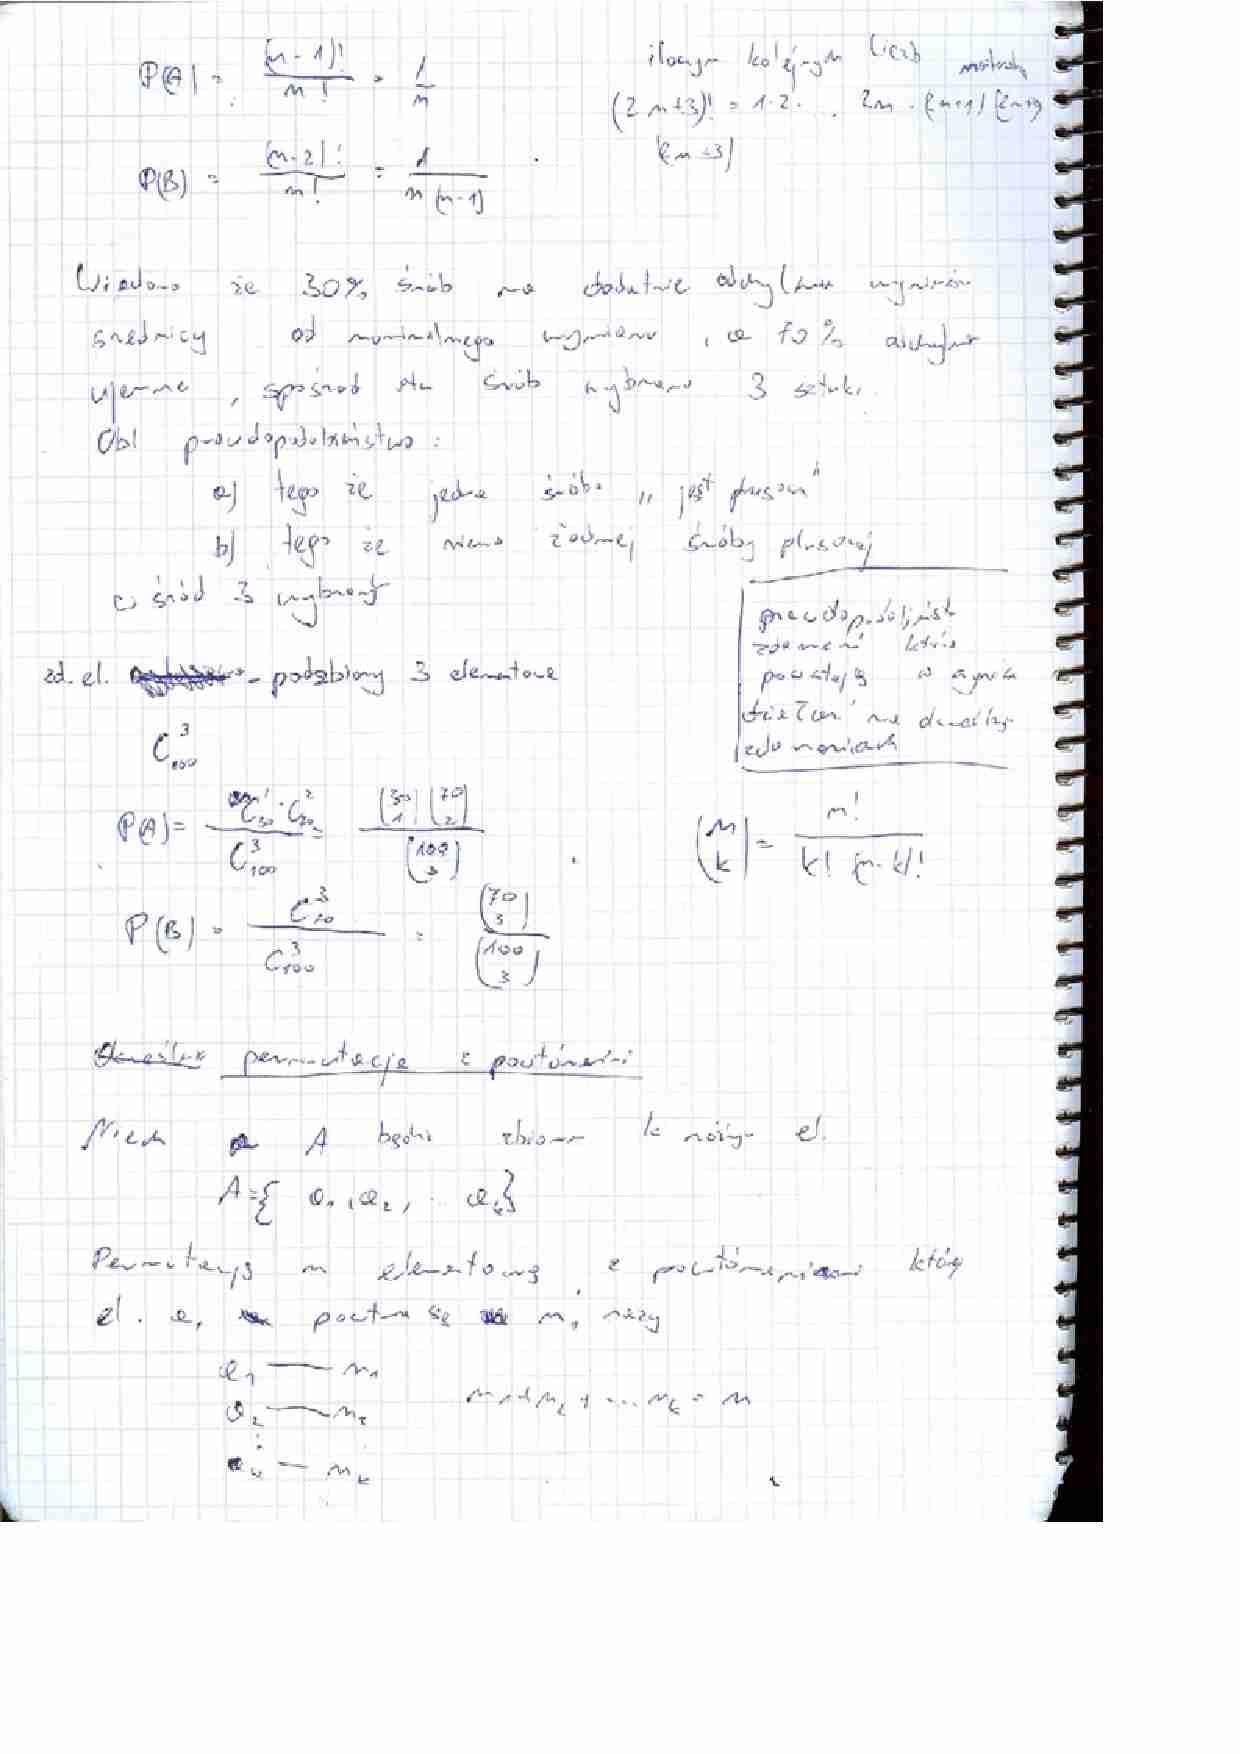 P(A) = (n-1)! / n! = 1/n
iloczyn kolejnym liczb
(2n+3)! = 1·2· ... 2n · (2n+1) (2n+2)
(2n+3)
P(B) = (n-2)! / n! = 1 / n(n-1)
Wiadomo że 30% śrub ma dodatnie odchylenie wymiarów
średnicy od nominalnego wymiaru, a 70% odchylenie
ujemne, spośród stu śrub wybrano 3 sztuki.
Obl prawdopodobieństwo:
a) tego że jedna śruba „jest plusowa"
b) tego że niema żadnej śruby plusowej
w śród 3 wybranych
prawdopodobieńst
zdarzeń które
powstają w wyniku
działań na
zdarzeniach
zd. el. - podzbiory 3 elementowe
C³₁₀₀
P(A) = C¹₃₀ · C²₇₀ / C³₁₀₀ = (30 1) (70 2) / (100 3)
(n k) = n! / k! (n-k)!
P(B) = C³₇₀ / C³₁₀₀ = (70 3) / (100 3)
permutacje z powtórzeniami
Niech A będzie zbiorem k różnych el.
A = { a₁, a₂, ... aₖ}
Permutacją n elementową z powtórzeniami której
el. aᵢ powtarza się nᵢ razy
a₁ — n₁
n₁ + n₂ + ... nₖ = n
a₂ — n₂
⋮
aₖ — nₖ